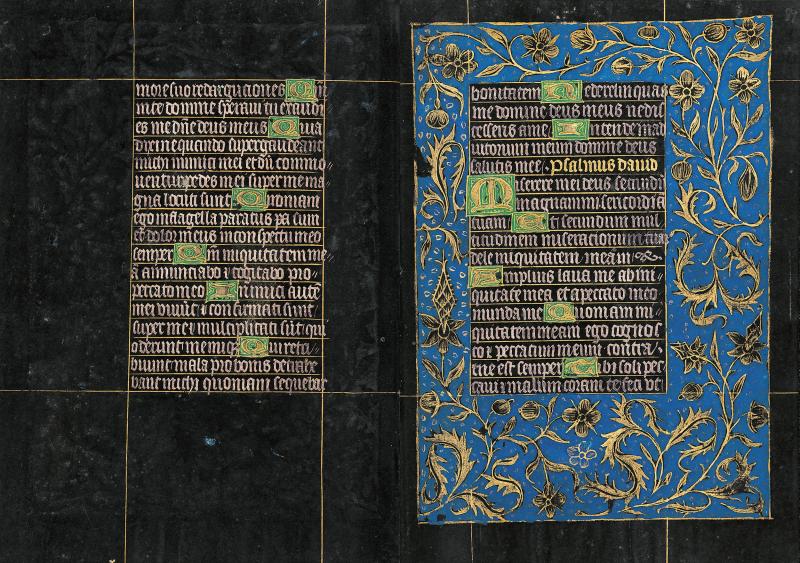 more suo redargutiones Qm̄
in te domine speraui tu exaudi
es me dn̄e deus meus Quia
dixi ne quando supergaudeant
michi inimici mei et dū commo
uentur pedes mei super me ma
gna locuti sunt Quoniam
ego in flagella paratus sum
et dolor meus in conspectu meo
semper Qm̄ iniquitatem me
a annunciabo ⁊ cogitabo pro
peccato meo Inimici autē
mei uiuūt ⁊ confirmati sunt
super me ⁊ multiplicati sūt qui
oderunt me iniq Qui retri
buunt mala pro bonis detrahe
bant michi quoniam sequebar
bonitatem Ne derelinquas
me domine deus meus ne dis
cesseris a me Intende in ad
iutorium meum domine deus
salutis mee Psalmus dauid
Miserere mei deus secundū
magnam misericordiā
tuam Et secundum mul
titudinem miserationum tuarū
dele iniquitatem meam
Amplius laua me ab ini
quitate mea et a peccato meo
munda me Quoniam ini
quitatem meam ego cognos
co ⁊ peccatum meum contra
me est semper Tibi soli pec
caui ⁊ malum coram te feci vt